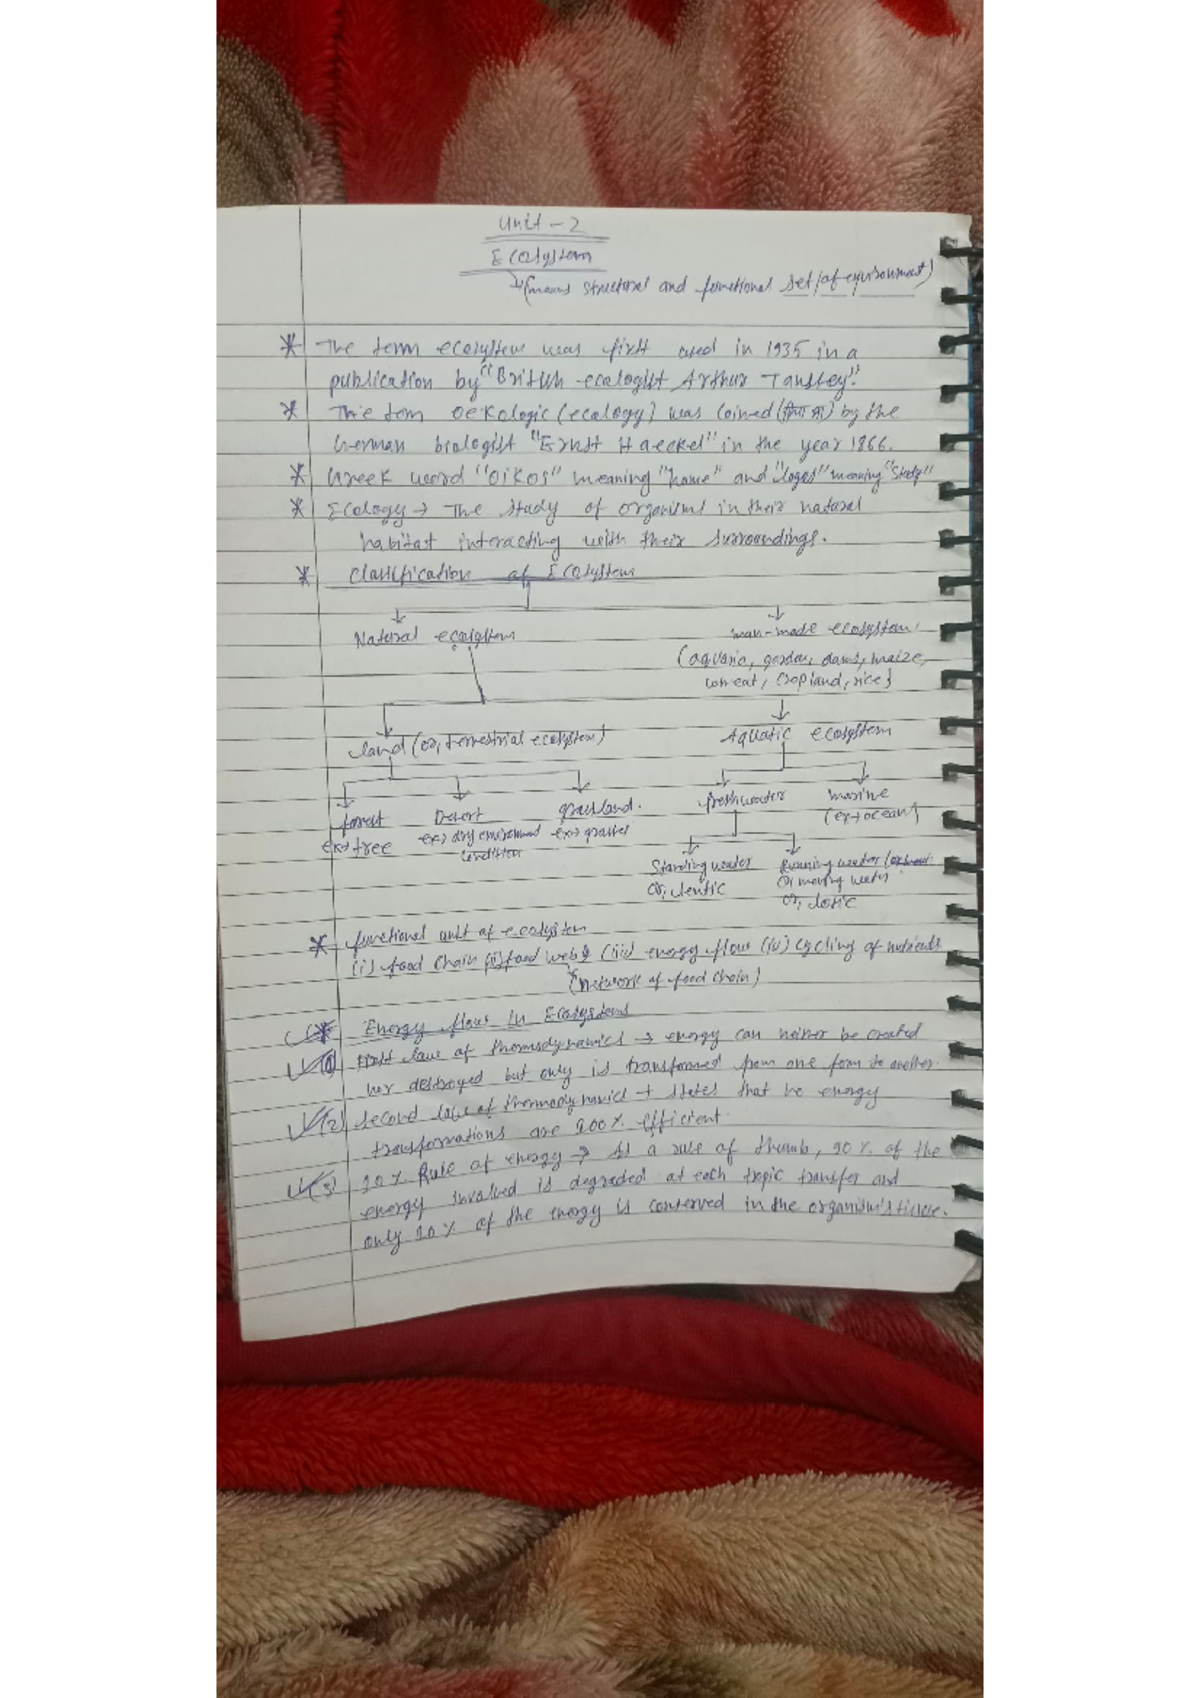 Unit - 2
Ecosystem
(means structural and functional set/of environment)
* The term ecosystem was first used in 1935 in a
publication by "British ecologist Arthur Tansley".
* The term oekologie (ecology) was coined by the
German biologist "Ernst Haeckel" in the year 1866.
* Greek word "Oikos" meaning "home" and "logos" meaning "Study"
* Ecology → The study of organisms in their natural
habitat interacting with their surroundings.
* Classification of Ecosystem
Natural ecosystem
man-made ecosystem
(aquaria, garden, dams, maize,
wheat, cropland, rice)
land (or, terrestrial ecosystem)
Aquatic ecosystem
forest
ex→ tree
Desert
ex→ dry environment
condition
grassland.
ex→ grasses
freshwater
marine
(ex→ ocean)
Standing water
or, lentic
Running water
or moving water
or, lotic
* functional unit of ecosystem
(i) food chain (ii) food web (iii) energy flow (iv) Cycling of nutrients
(network of food chain)
* Energy flow in Ecosystems
(1) First law of thermodynamics → energy can neither be created
nor destroyed but only is transformed from one form to another.
(2) Second law of thermodynamics → states that no energy
transformations are 100% efficient.
(3) 10% Rule of energy → As a rule of thumb, 90% of the
energy involved is degraded at each tropic transfer and
only 10% of the energy is conserved in the organism's tissue.